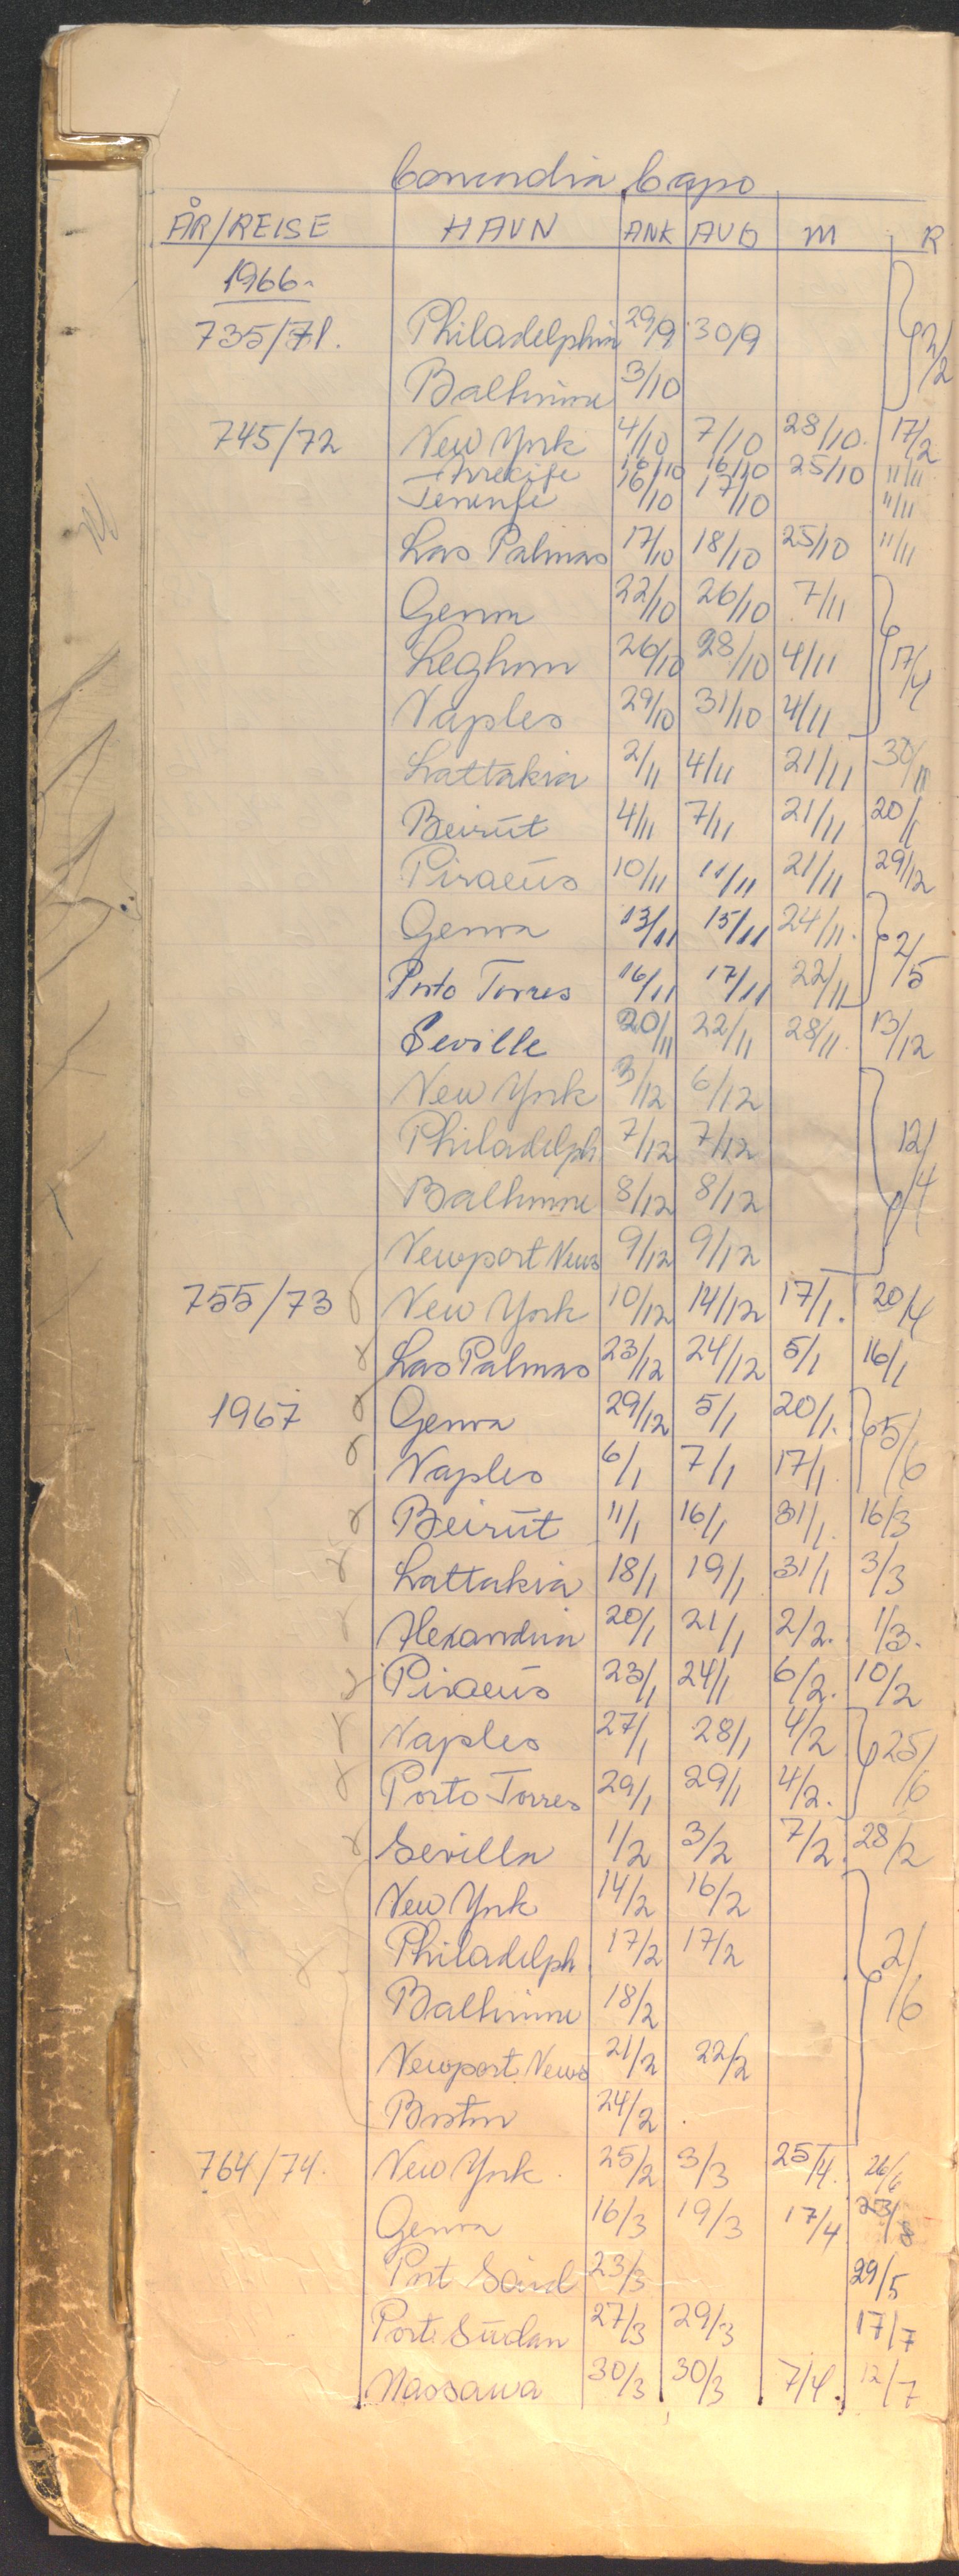 Concordia Capo
ÅR/REISE HAVN ANK AVG M R
1966
735/71. Philadelphia 29/9 30/9 2/2
Baltimore 3/10
745/72 New York 4/10 7/10 28/10. 17/2
Arrecife 16/10 16/10 25/10 11/11
Tenerife 16/10 17/10 11/11
Las Palmas 17/10 18/10 25/10 11/11
Genoa 22/10 26/10 7/11
Leghorn 26/10 28/10 4/11 17/4
Naples 29/10 31/10 4/11
Lattakia 2/11 4/11 21/11 30/11
Beirut 4/11 7/11 21/11 20/1
Piraeus 10/11 11/11 21/11 29/12
Genoa 13/11 15/11 24/11. 2/5
Porto Torres 16/11 17/11 22/11
Seville 20/11 22/11 28/11. 13/12
New York 3/12 6/12
Philadelph 7/12 7/12 12/4
Baltimore 8/12 8/12
Newport News 9/12 9/12
755/73 New York 10/12 14/12 17/1. 20/4
Las Palmas 23/12 24/12 5/1 16/1
1967 Genoa 29/12 5/1 20/1. 5/6
Naples 6/1 7/1 17/1.
Beirut 11/1 16/1 31/1. 16/3
Lattakia 18/1 19/1 31/1 3/3
Alexandria 20/1 21/1 2/2. 1/3.
Piraeus 23/1 24/1 6/2. 10/2
Naples 27/1 28/1 4/2 25/6
Porto Torres 29/1 29/1 4/2.
Sevilla 1/2 3/2 7/2 28/2
New York 14/2 16/2
Philadelph 17/2 17/2 2/6
Baltimore 18/2
Newport News 21/2 22/2
Boston 24/2
764/74. New York 25/2 3/3 25/4. 26/6
Genoa 16/3 19/3 17/4 23/8
Port Said 23/3 29/5
Port Sudan 27/3 29/3 17/7
Massawa 30/3 30/3 7/4. 12/7